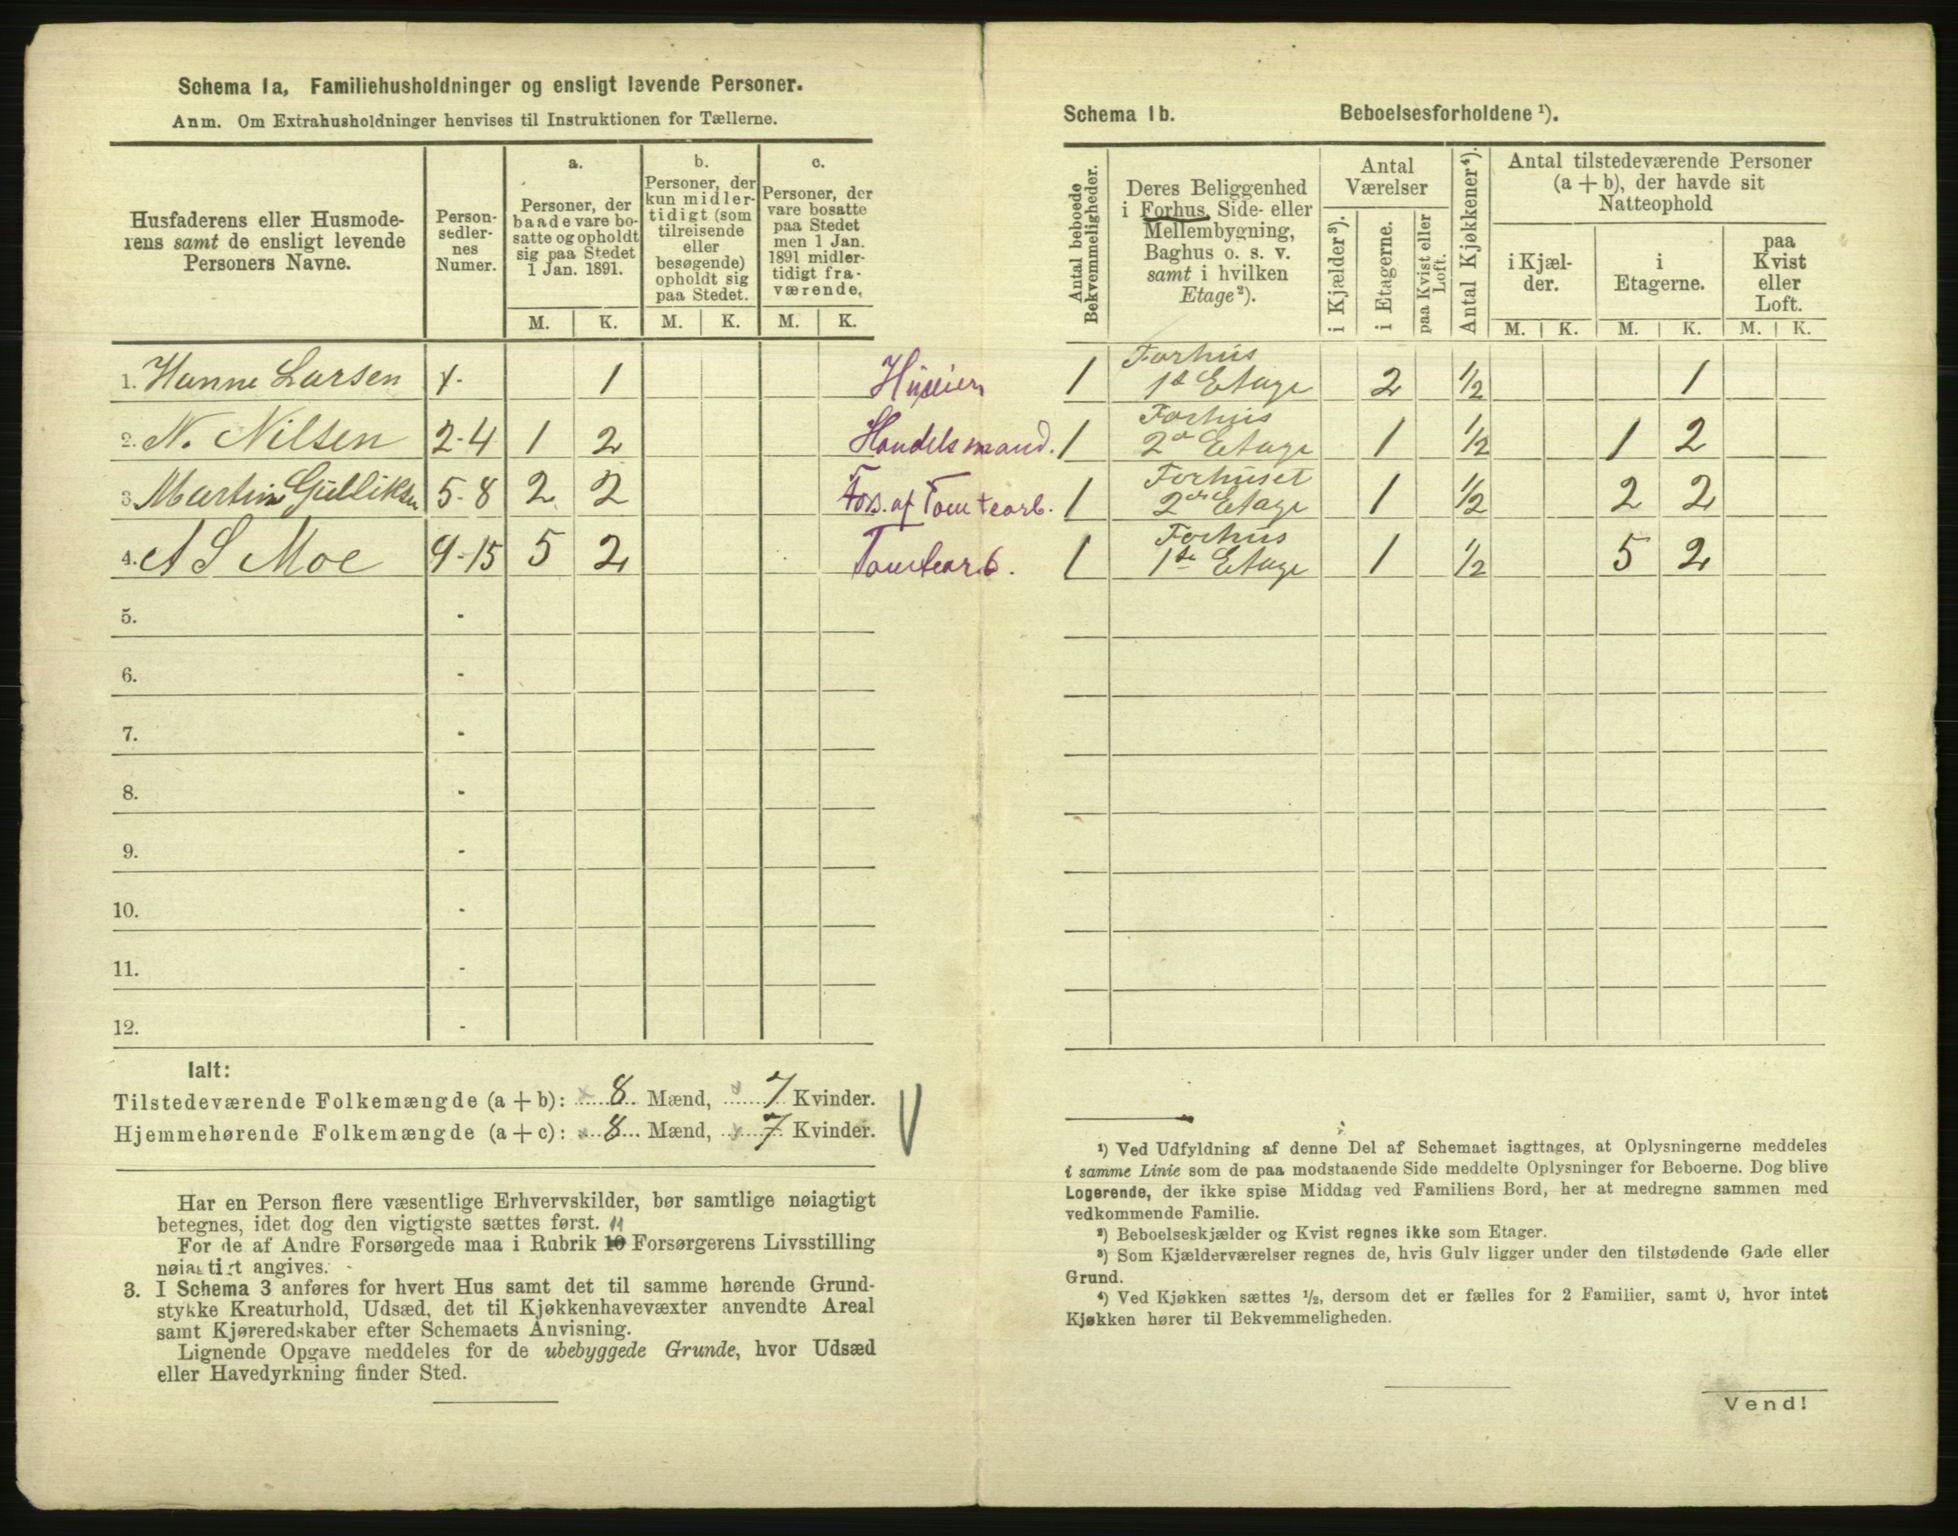 Schema 1a, Familiehusholdninger og ensligt levende Personer.
Anm. Om Extrahusholdninger henvises til Instruktionen for Tællerne.
Husfaderens eller Husmode-
rens samt de ensligt levende
Personers Navne.
Person-
sedler-
nes
Numer.
a.
Personer, der
baade vare bo-
satte og opholdt
sig paa Stedet
1 Jan. 1891.
b.
Personer, der
kun midler-
tidigt (som
tilreisende
eller
besøgende)
opholdt sig
paa Stedet.
c.
Personer, der
vare bosatte
paa Stedet
men 1 Jan.
1891 midler-
tidigt fra-
værende.
M. K. M. K. M. K.
1. Hanne Larsen 1 Huseier
2. N. Nilsen 2-4 1 2 Handelsmand.
3 Martin Gulliksen 5-8 2 2 Fors. af Tomtearb.
4. A S Moe 9-15 5 2 Tomtearb.
5. -
6. -
7. -
8. -
9. -
10. -
11. -
12. -
Ialt:
Tilstedeværende Folkemængde (a + b): 8 Mænd, 7 Kvinder.
Hjemmehørende Folkemængde (a + c): 8 Mænd, 7 Kvinder.
Har en Person flere væsentlige Erhvervskilder, bør samtlige nøiagtigt
betegnes, idet dog den vigtigste sættes først. 11
For de af Andre Forsørgede maa i Rubrik 10 Forsørgerens Livsstilling
nøiagtigt angives.
3. I Schema 3 anføres for hvert Hus samt det til samme hørende Grund-
stykke Kreaturhold, Udsæd, det til Kjøkkenhavevæxter anvendte Areal
samt Kjøreredskaber efter Schemaets Anvisning.
Lignende Opgave meddeles for de ubebyggede Grunde, hvor Udsæd
eller Havedyrkning finder Sted.
Schema 1b. Beboelsesforholdene ¹).
Antal beboede
Bekvemmeligheder.
Deres Beliggenhed
i Forhus, Side- eller
Mellembygning,
Baghus o. s. v.
samt i hvilken
Etage²).
Antal
Værelser
i Kjælder³).
i Etagerne.
paa Kvist eller
Loft.
Antal Kjøkkener⁴).
Antal tilstedeværende Personer
(a + b), der havde sit
Natteophold
i Kjæl-
der.
i
Etagerne.
paa
Kvist
eller
Loft.
M. K. M. K. M. K.
1 Forhus
1ste Etage 2 ½ 1
1 Forhus
2den Etage 1 ½ 1 2
1 Forhuset
2den Etage 1 ½ 2 2
1 Forhus
1ste Etage 1 ½ 5 2
¹) Ved Udfyldning af denne Del af Schemaet iagttages, at Oplysningerne meddeles
i samme Linie som de paa modstaaende Side meddelte Oplysninger for Beboerne. Dog blive
Logerende, der ikke spise Middag ved Familiens Bord, her at medregne sammen med
vedkommende Familie.
²) Beboelseskjælder og Kvist regnes ikke som Etager.
³) Som Kjælderværelser regnes de, hvis Gulv ligger under den tilstødende Gade eller
Grund.
⁴) Ved Kjøkken sættes ½, dersom det er fælles for 2 Familier, samt 0, hvor intet
Kjøkken hører til Bekvemmeligheden.
Vend!